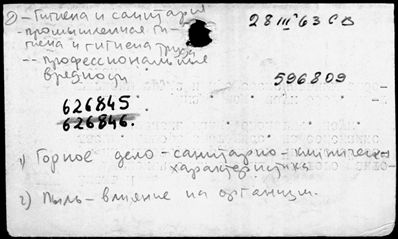 2) - Гигиена и санитария
- промышленная ги-
гиена и гигиена труда
-- профессиональные
вредности
28 III 63
596809
626845
626846.
1) Горное дело - санитарно - клиническ
характеристика
2) Пыль - влияние на организм.